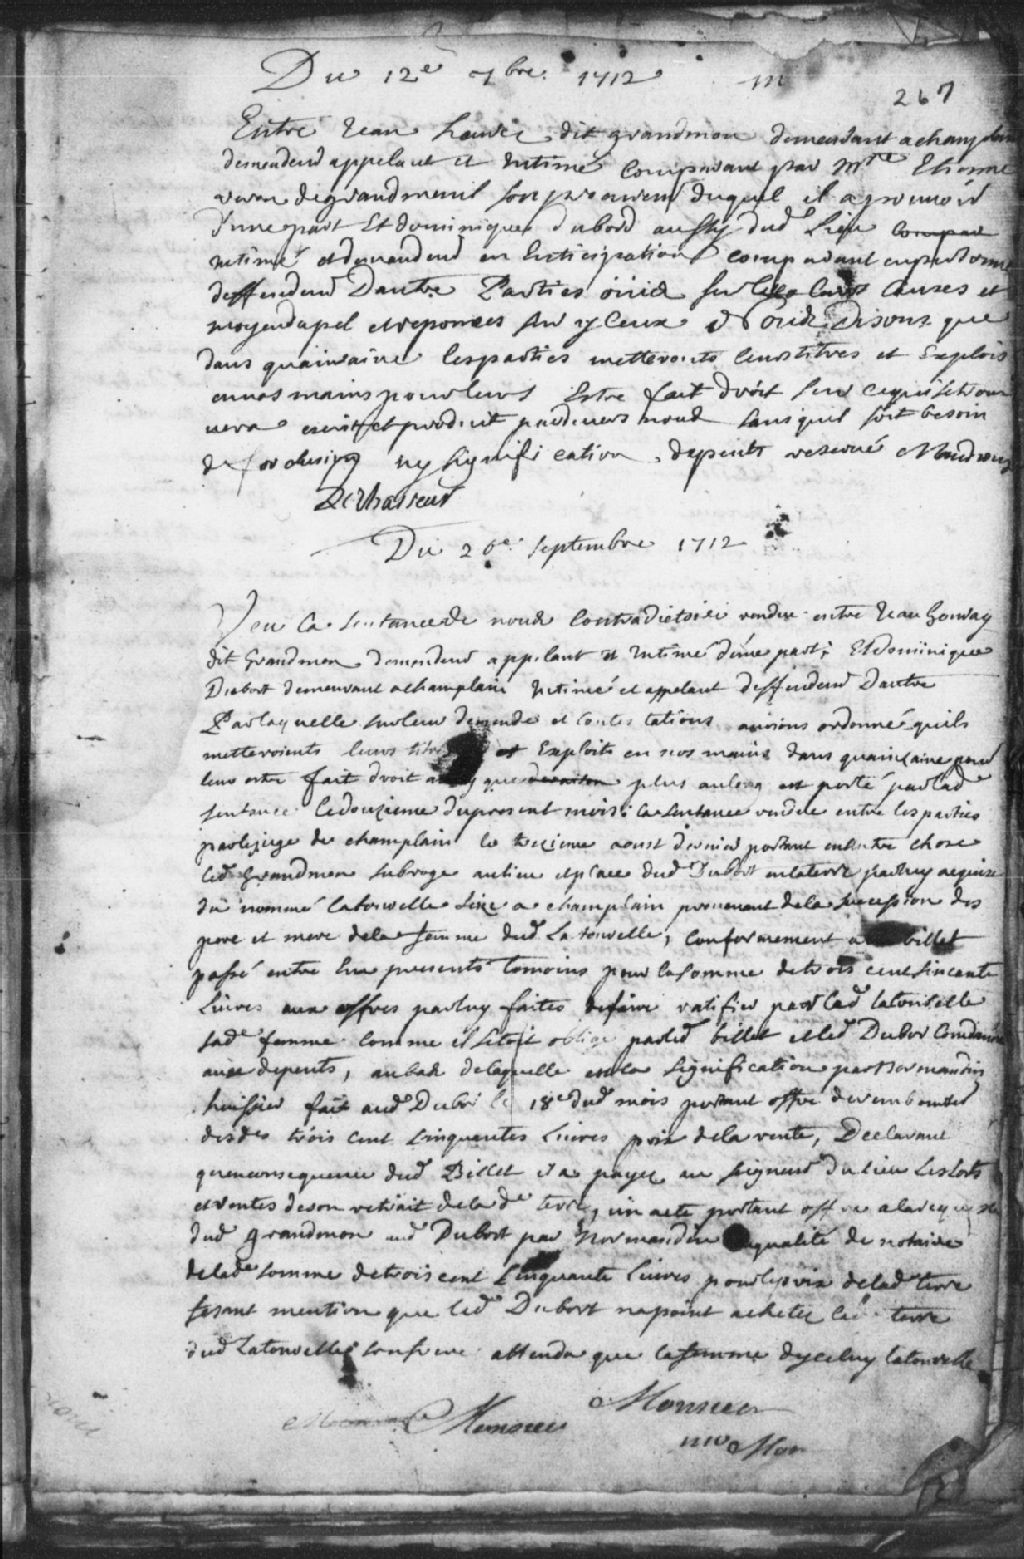 Du 12e 7bre. 1712 m
267
Entre Jean houré dit grandmon demeurant a champlain
demendeur appelant et Intimé Comparant par Mre Etienne
veron de grandmenil son procureur duquel il a pouvoir
d'une part Et dominique dubord aussy dud lieu compar
intimé et demendeur en Enticipation comparant en personne
deffendeur Dautre Parties ouies sur les Causes et
moyend apel et reponces sur yceux Nous Disons que
dans quainzaine les parties metteronts leurs titres et Exploits
en nos mains pour leurs Estre fait droit sur ce quils trou
vera escrit et produit pardevers nous sans quil soit besoin
de forclusion ny signification, depents reservé Mandons
Dechasseur
Du 20e. Septembre 1712
Veu La Sentance de nous Contradictoire rendue entre Jean houray
dit Grandmon demendeur appelant et Intimé d'une part; Et Dominique
Dubort demeurant a champlain Intimé et appelant deffendeur Dautre
Par laquelle sur leur demende et contestations aurions ordonné quils
metteroients leurs titres et Exploits en nos mains dans quainzaine pour
leur estre fait droit que plus aulong est porté par lad
sentance Le douzieme du present mois; la sentance rendue entre les parties
par le juge de champlain le treizieme aoust dernier portant entre autre chose
led Grandmon subroge au lieu et place dud Dubort en la terre par luy acquise
du nommé latouvelle size a champlain provenant de la succession des
pere et mere de la femme dud La touvelle, Conformement a billet
passé entre Eux presents temoins pour la somme de trois cent sincante
Livres aux offres par luy faites de faire ratifier par lad latouvelle
sad femme comme il s'etoit obligé par led billet et led Dubor Condamné
aux depents, au bas de laquelle est la signification par Normandin
huissier fait aud Dubor le 18e dud mois portant offre de rembourser
des trois cent cinquentes Livres prix de la vente, Declarant
qu'en consequence dud Billet il a payez au seigneur du lieu les lots
et ventes de son retrait de lad terre, un acte portant offre a la requeste
dud grandmon aud Dubort par Normandin qualité de notaire
de lad somme de trois cent cinquante livres pour le prix de lad terre
fesant mention que led Dubort na point achetez la terre
dud Latouvelle son frere attendu que la femme d'yceluy latouvelle
Monsieur
Monsieur
mo Mon